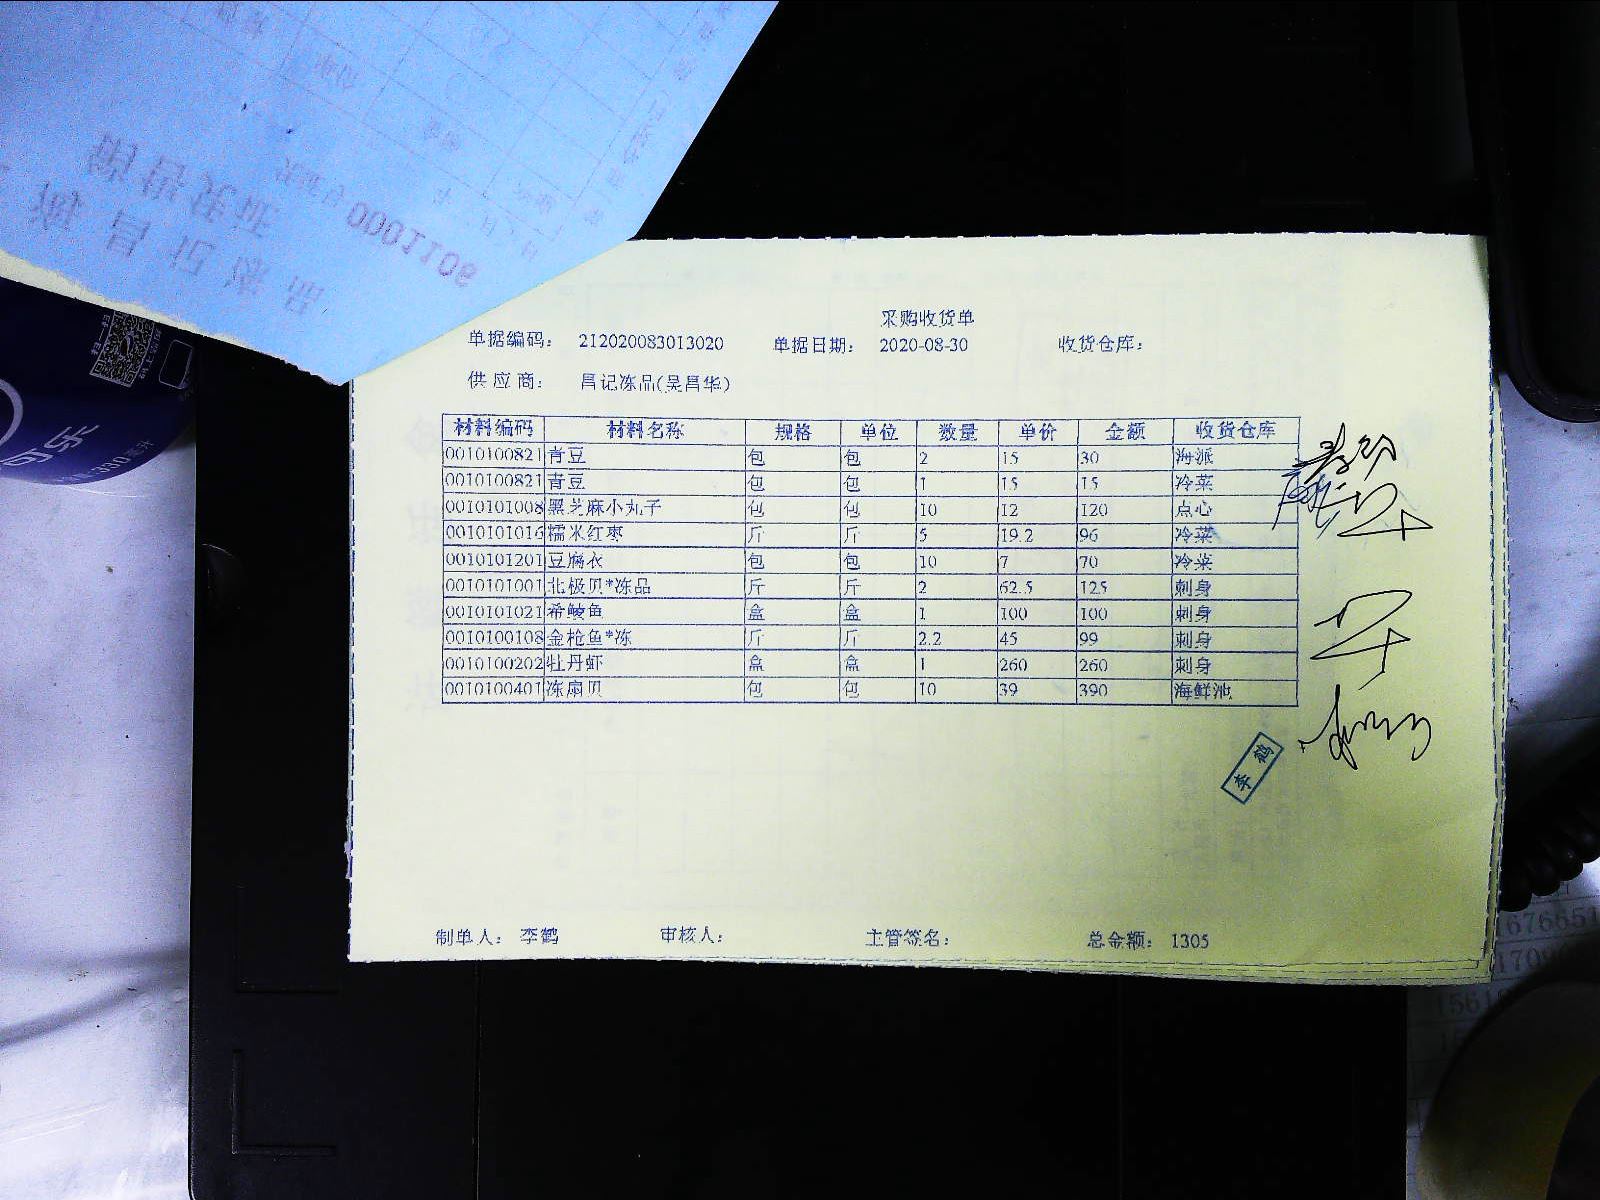 采购收货单
单据编码： 212020083013020 单据日期： 2020-08-30 收货仓库：
供应商： 昌记冻品(吴昌华)
材料编码 材料名称 规格 单位 数量 单价 金额 收货仓库
0010100821 青豆 包 包 2 15 30 海派
0010100821 青豆 包 包 1 15 15 冷菜
0010101008 黑芝麻小丸子 包 包 10 12 120 点心
0010101016 糯米红枣 斤 斤 5 19.2 96 冷菜
0010101201 豆腐衣 包 包 10 7 70 冷菜
0010101001 北极贝*冻品 斤 斤 2 62.5 125 刺身
0010101021 希鲮鱼 盒 盒 1 100 100 刺身
0010100108 金枪鱼*冻 斤 斤 2.2 45 99 刺身
0010100202 牡丹虾 盒 盒 1 260 260 刺身
0010100401 冻扇贝 包 包 10 39 390 海鲜池
李鹤
制单人： 李鹤 审核人： 主管签名： 总金额： 1305
0001106
可乐
330毫升